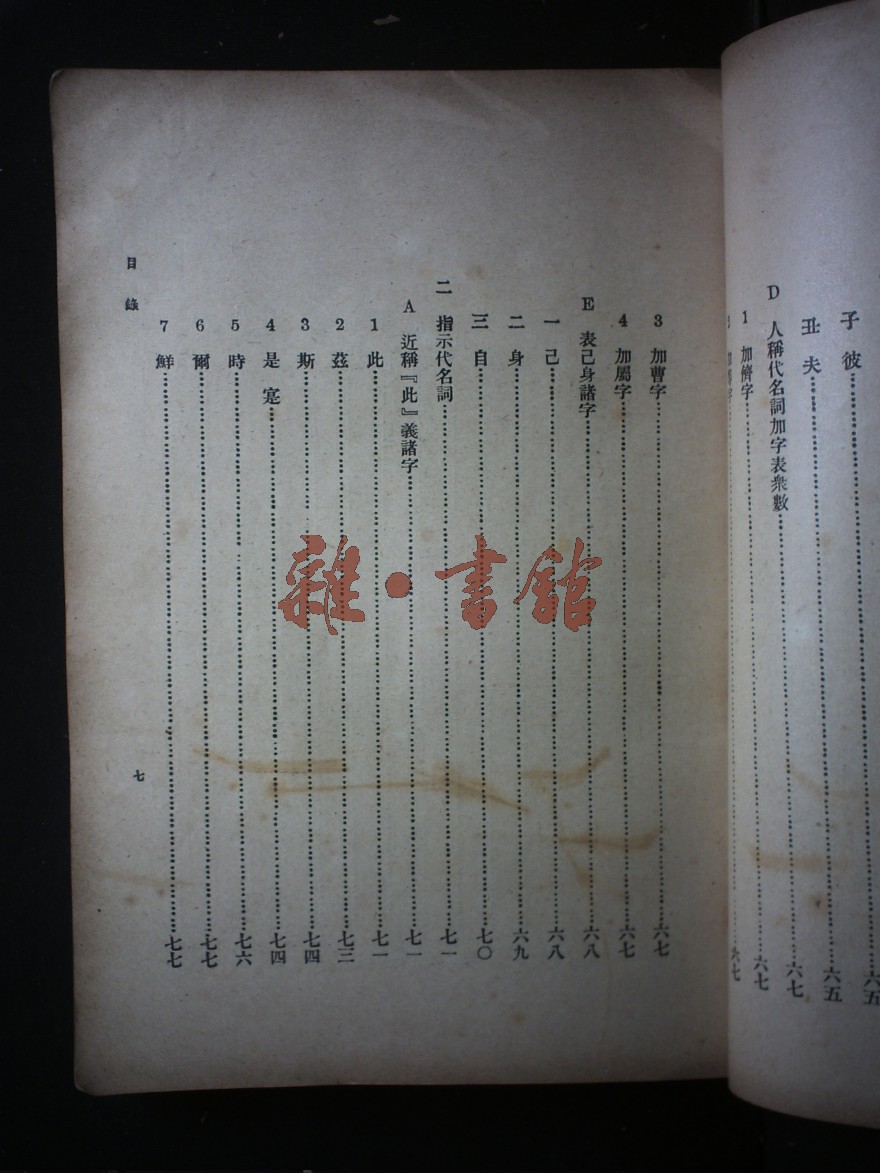 子 彼……六五
丑 夫……六五
D 人稱代名詞加字表衆數……六七
1 加儕字……六七
六七
3 加曹字……六七
4 加屬字……六七
E 表己身諸字……六八
一 己……六八
二 身……六九
三 自……七〇
二 指示代名詞……七一
A 近稱『此』義諸字……七一
1 此……七一
2 茲……七三
3 斯……七四
4 是 寔……七四
5 時……七六
6 爾……七七
7 鮮……七七
目錄
七
雜·書館